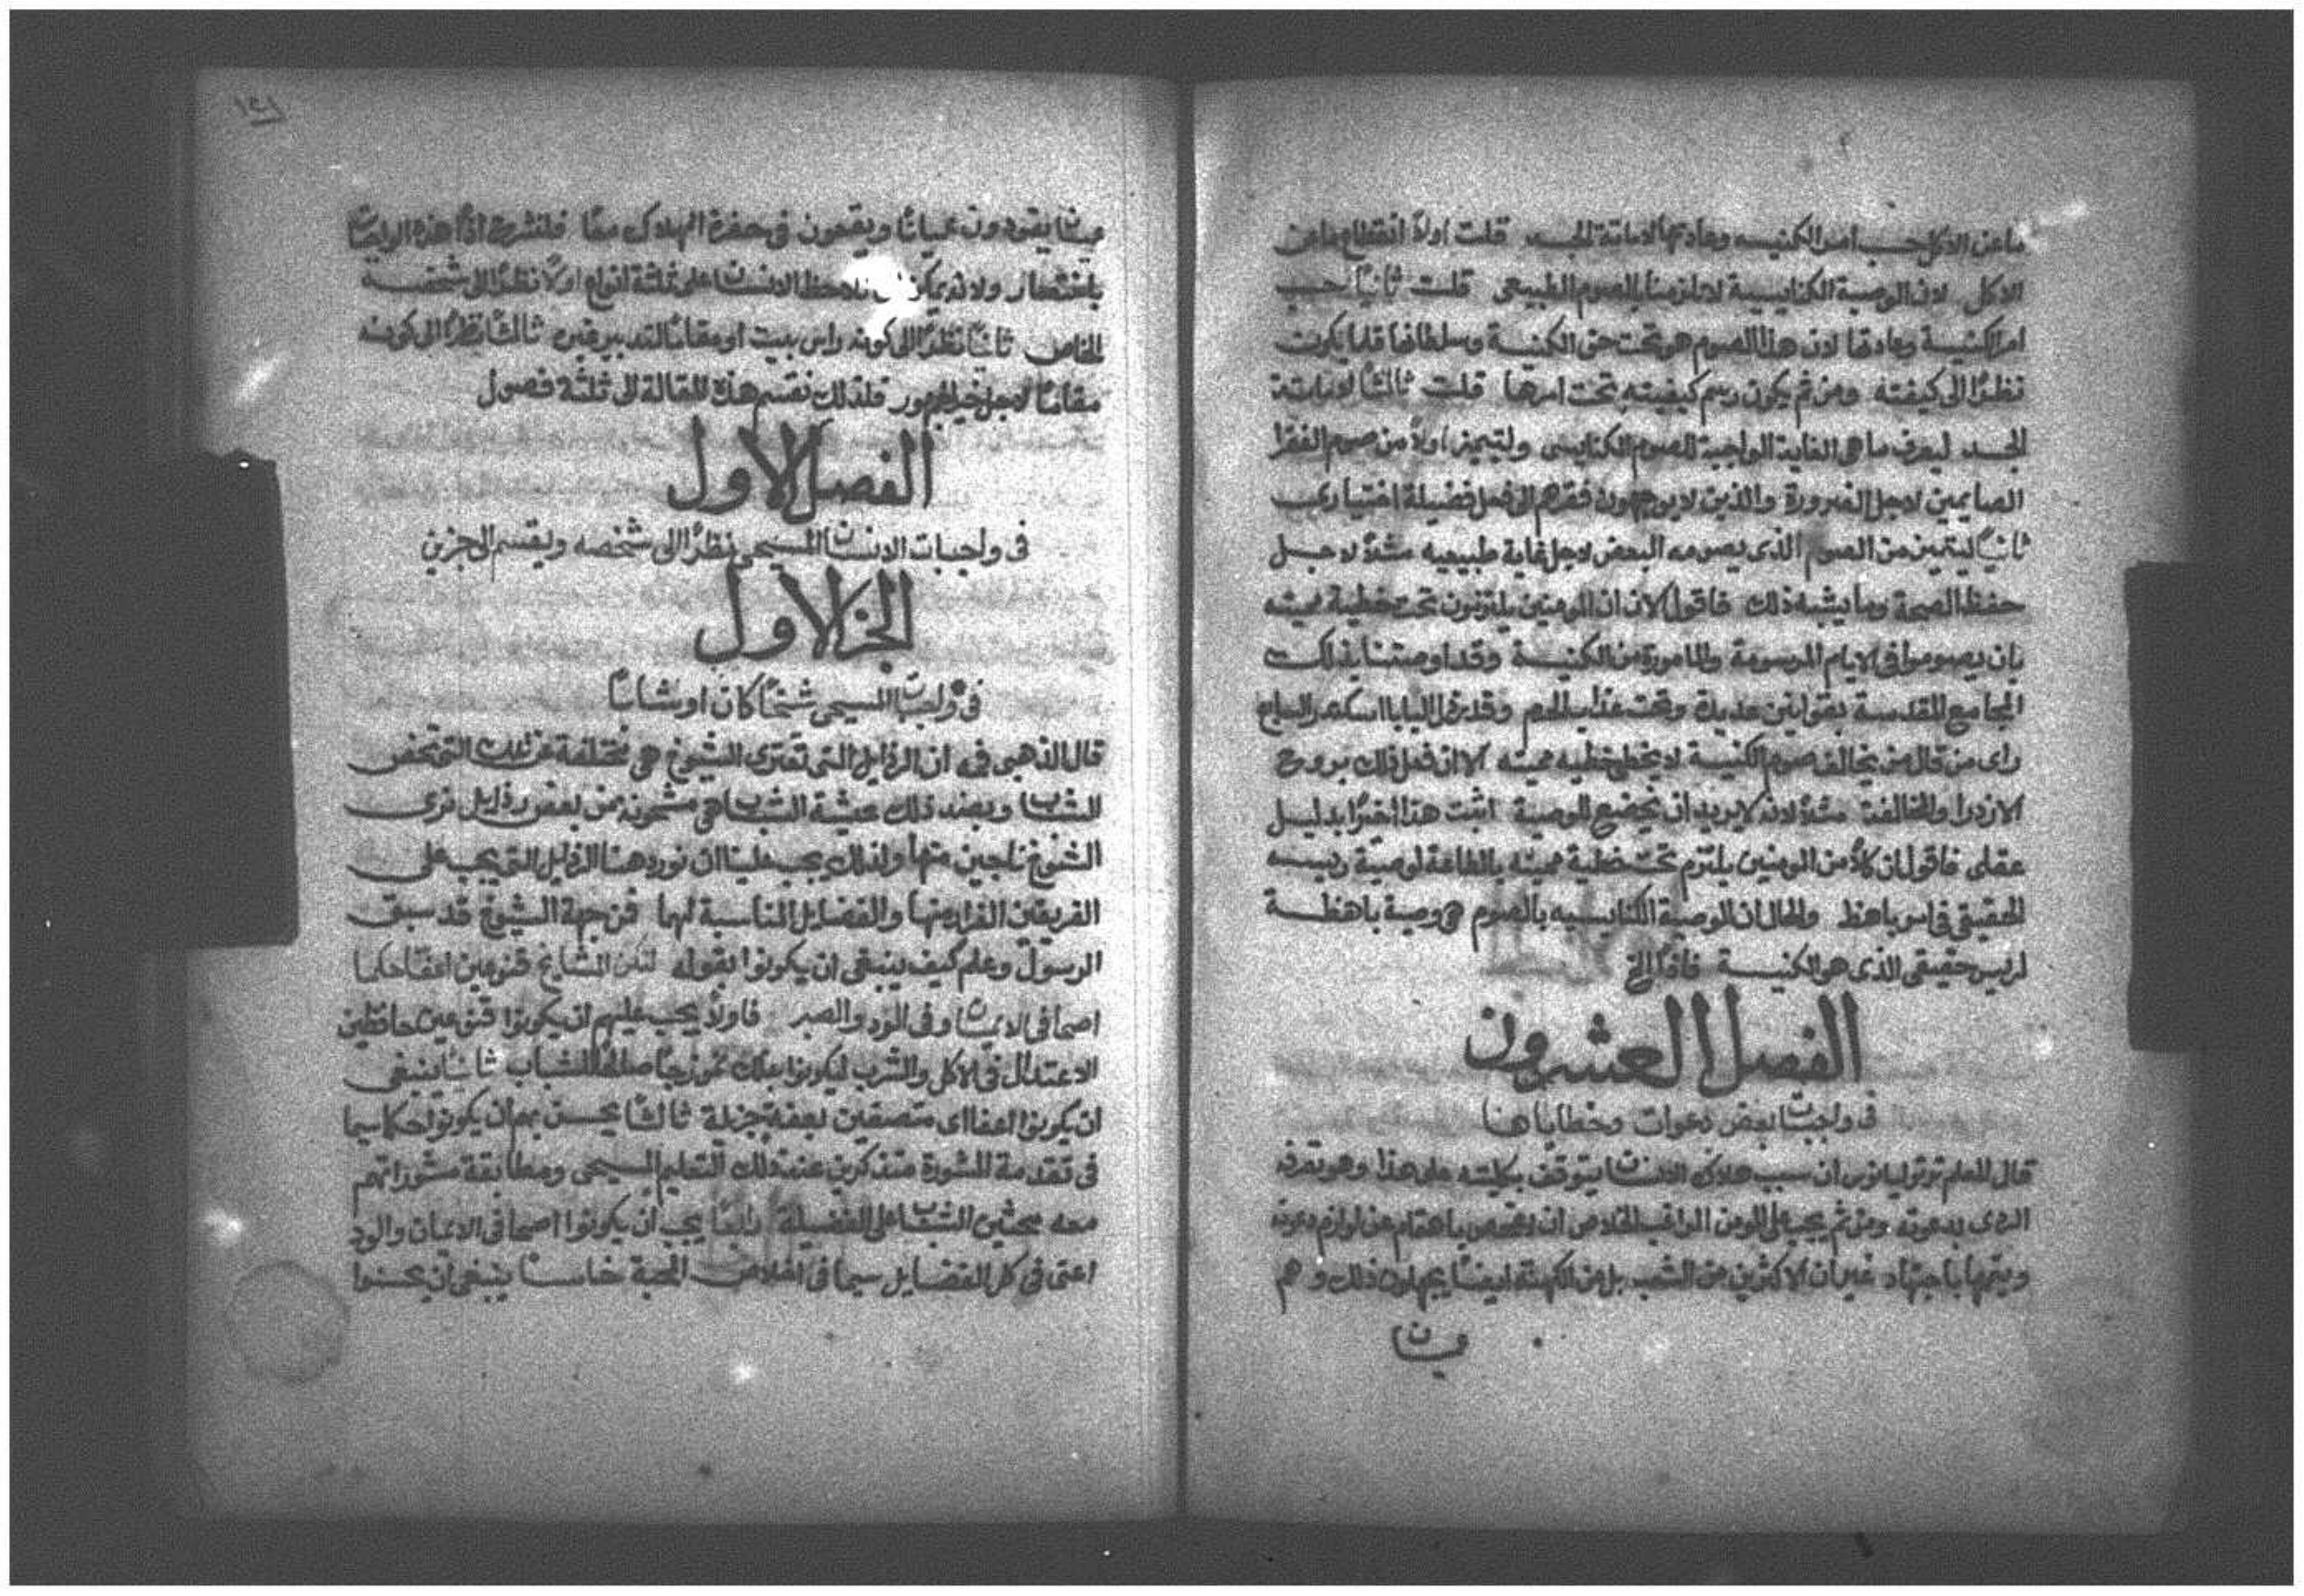 ما عن الاكل حسب امر الكنيسه وعادتها لاماتة الجسد قلت اولاً انقطاع ما عن
الاكل لان الوصية الكنايسية لا تلزمنا بالصوم الطبيعى قلت ثانياً حسب
امر الكنيسة وعادتها لان هذا الصوم هو تحت حق الكنيسة وسلطانها قلما يكون
نظرًا الى كيفيته ومن ثم يكون رسم كيفيته تحت امرها قلت ثالثاً لاماتة
الجسد ليعرف ما هى الغاية الواجبة للصوم الكنايسى وليتميز اولاً من صوم الفقرا
الصايمين لاجل الضرورة والذين لا يوجهون فقرهم الى فعل فضيلة اختيارى
ثانياً ليتميز من الصوم الذى يصومه البعض لاجل غاية طبيعيه مثلاً لاجل
حفظ الصحة وما يشبه ذلك فاقول الان ان المومنين يلتزمون تحت خطية مميته
بان يصوموا فى الايام المرسومة والمامورة من الكنيسة وقد اوصتنا بذلك
المجامع المقدسة بقوانين عديدة وتحت عذاب الحرم وقد رذل البابا اسكندر السابع
راى من قال من يخالف صوم الكنيسة لا يخطى خطيه مميته الا ان فعل ذلك بروح
الازدرا والمخالفة مثلاً لانه لا يريد ان يخضع للوصية اثبت هذا اخيرًا بدليل
عقلى فاقول ان كلاً من المومنين يلتزم تحت خطية مميته بالطاعة لوصية رييسه
الحقيقى فى امر باهظ والحال ان الوصية الكنايسيه بالصوم هى وصية باهظة
لرييس حقيقى الذى هو الكنيسة فاذًا الخ
الفصل العشرون
فى واجبات بعض دعوات وخطاياها
قال المعلم توتوليانوس ان سبب هلاك الانسان يتوقف بكليته على هذا وهو تصرفه
الردى بدعوته ومن ثم يجب على المومن الراغب الخلاص ان يفحص باهتمام عن لوازم دعوته
ويتمها باجتهاد غير ان الاكثرين من الشعب بل من الكهنة ايضاً يجهلون ذلك وهم
عميان
١٢١
عميان يقودون عمياناً ويقعون فى حفرة الهلاك معًا فلنشرح اذًا هذه الواجبات
باختصار ولانه يمكن ان نلاحظ الانسان على ثلثة انواع اولاً نظرًا الى شخصه
الخاص ثانياً نظرًا الى كونه راس بيت او مقاماً لتدبير غيره ثالثاً نظرًا الى كونه
مقاماً لاجل خير الجمهور فلذلك نقسم هذه المقالة الى ثلثة فصول
الفصل الاول
فى واجبات الانسان المسيحى نظرًا الى شخصه ويقسم الى جزين
الجز الاول
فى واجبات المسيحى شيخاً كان او شاباً
قال الذهبى فمه ان الرذايل التى تعترى الشيوخ هى مختلفة عن تلك التى تخص
الشباب وبضد ذلك عيشة الشباب هى مشحونه من بعض رذايل نرى
الشيوخ ناجين منها ولذلك يجب علينا ان نورد هنا الرذايل التى يجب على
الفريقين الفرار منها والفضايل المناسبة لهما فمن جهة الشيوخ قد سبق
الرسول وعلم كيف ينبغى ان يكونوا بقوله لتكن المشايخ قنوعين اعفا حكما
اصحا فى الايمان وفى الود والصبر فاولاً يجب عليهم ان يكونوا قنوعين حافظين
الاعتدال فى الاكل والشرب ليكونوا بذلك نموذجاً صالحاً للشباب ثانياً ينبغى
ان يكونوا اعفا اى متصفين بعفة جزيلة ثالثاً يحسن بهم ان يكونوا حكما سيما
فى تقدمة المشورة متذكرين عند ذلك التعليم المسيحى ومطابقة مشوراتهم
معه محثين الشباب على الفضيلة رابعاً يجب ان يكونوا اصحا فى الايمان والود
اعنى فى كل الفضايل سيما فى اخلاص المحبة خامساً ينبغى ان يحسنوا